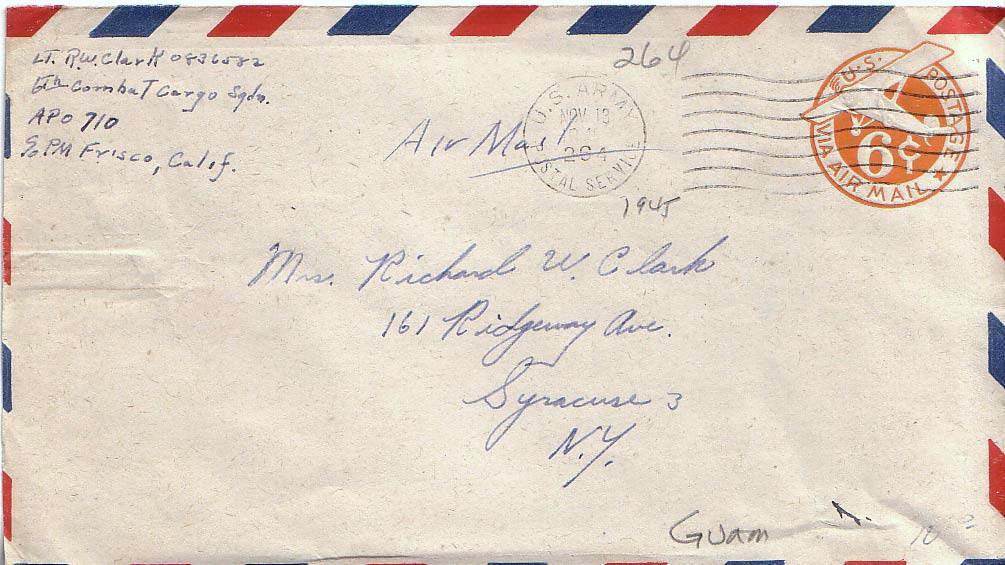 Lt. R.W. Clark 0836582
5th Combat Cargo Sqdn.
APO 710
c/o PM Frisco, Calif.
264
Air Mail
U.S. ARMY
NOV 13
264
POSTAL SERVICE
1945
U.S. POSTAGE
6¢
VIA AIR MAIL
Mrs. Richard W. Clark
161 Ridgeway Ave.
Syracuse 3
N.Y.
Guam